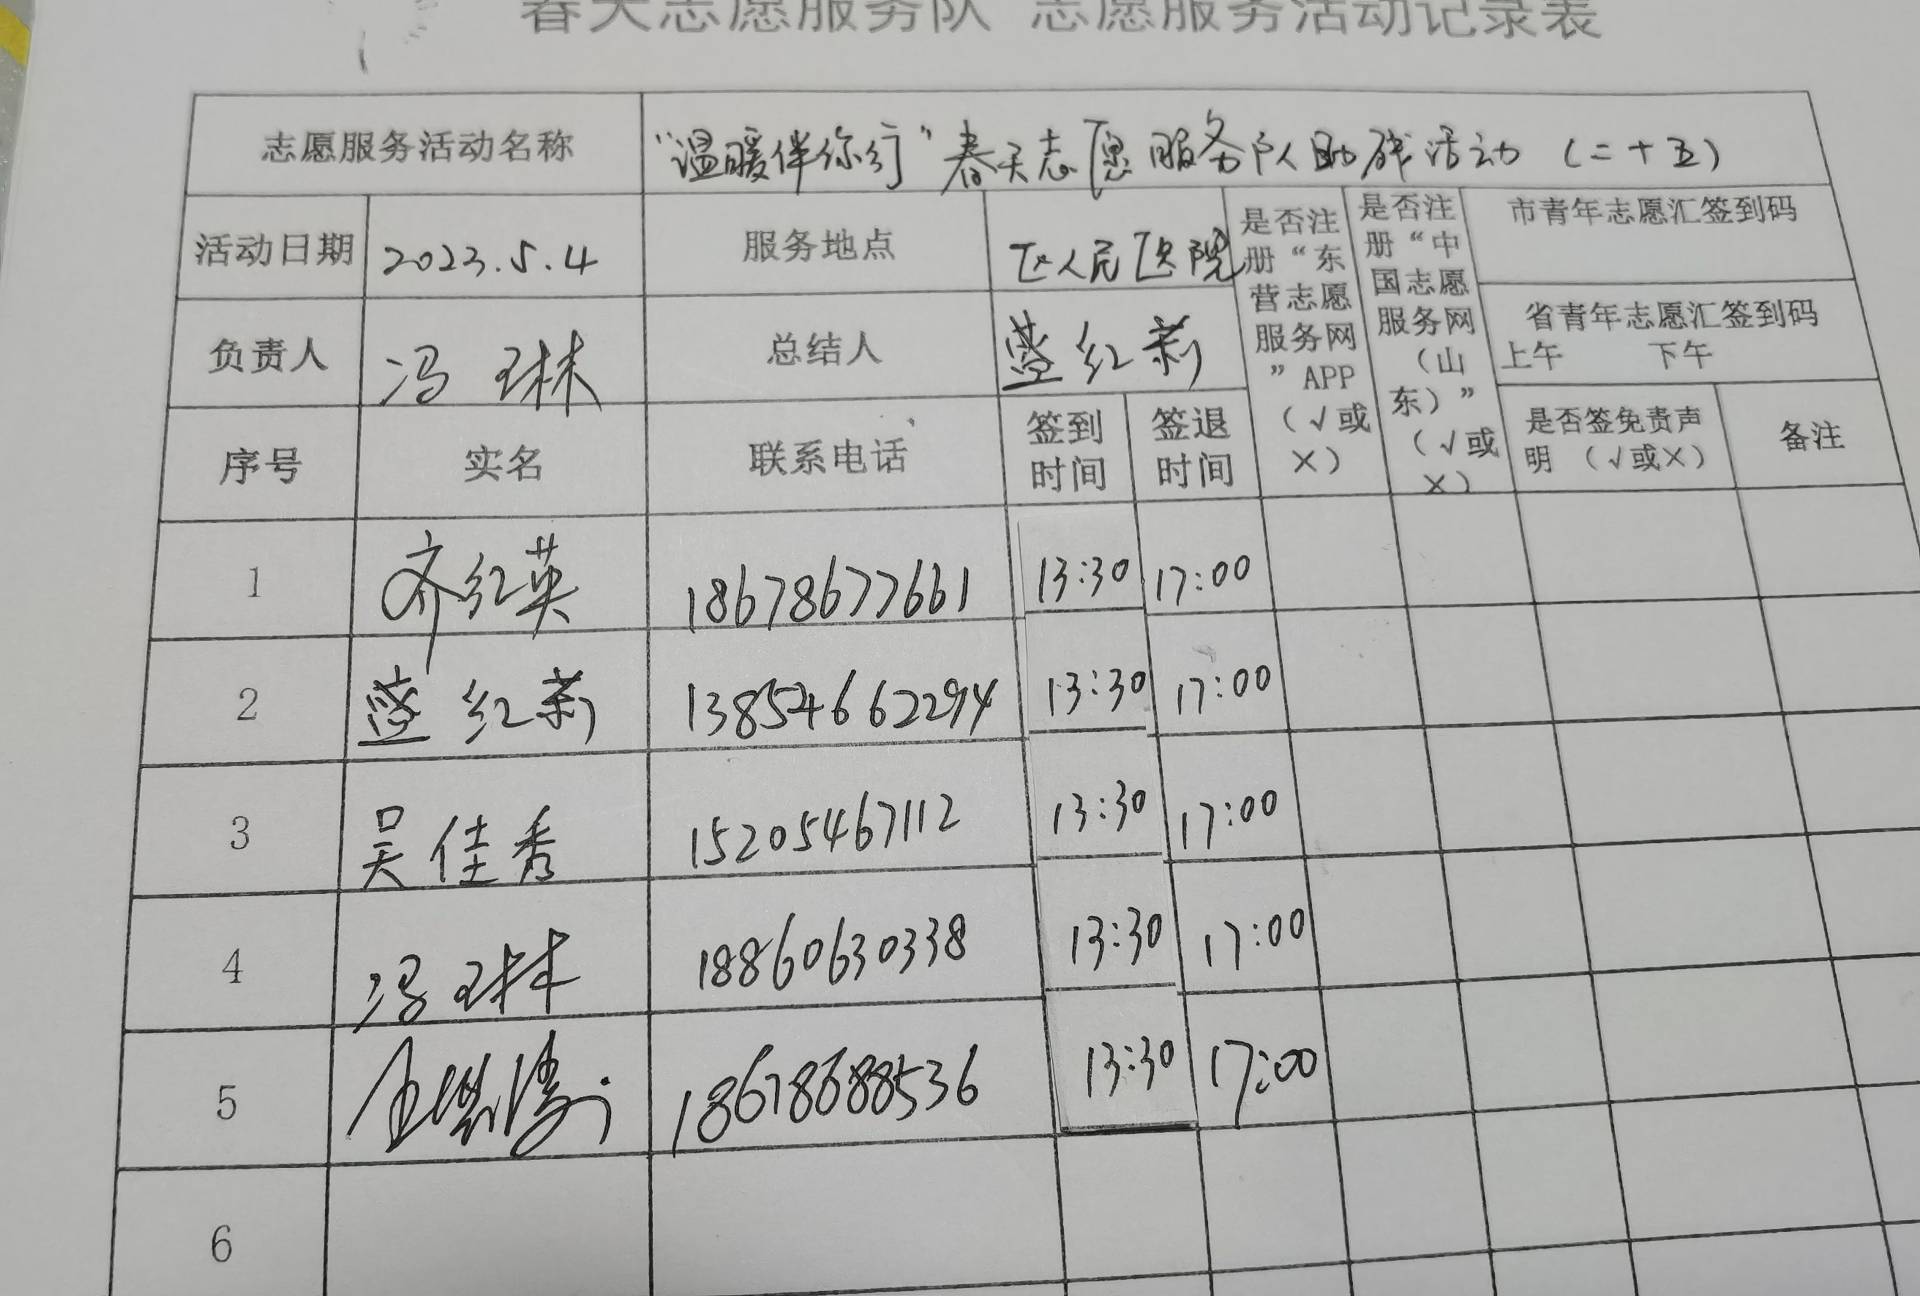 春天志愿服务队 志愿服务活动记录表
志愿服务活动名称 “温暖伴你行”春天志愿服务队助残活动（二十五）
活动日期 2023.5.4 服务地点 区人民医院
是否注册“东营志愿服务网”APP（√或×）
是否注册“中国志愿服务网（山东）”（√或×）
市青年志愿汇签到码
省青年志愿汇签到码
上午 下午
负责人 冯琳 总结人 红莉
序号 实名 联系电话 签到时间 签退时间 是否签免责声明（√或×） 备注
1 齐红英 18678677661 13:30 17:00
2 红莉 13854662294 13:30 17:00
3 吴佳秀 15205467112 13:30 17:00
4 冯琳 18860630338 13:30 17:00
5 18678688536 13:30 17:00
6